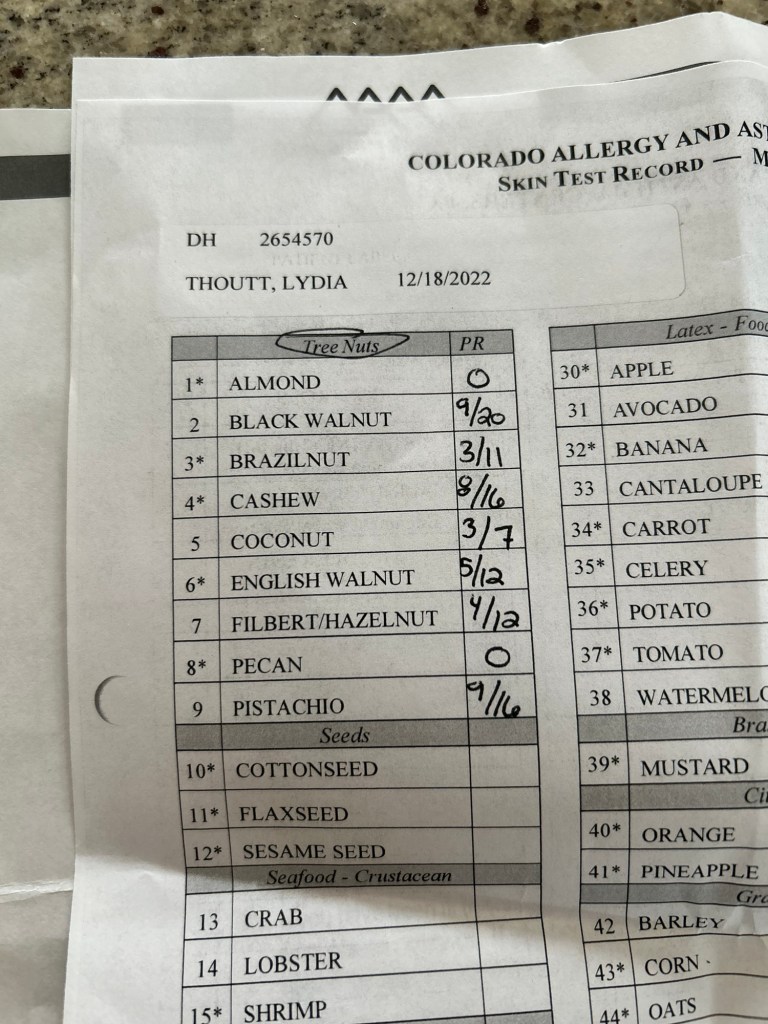 COLORADO ALLERGY AND
SKIN TEST RECORD —
DH 2654570
THOUTT, LYDIA 12/18/2022
Tree Nuts PR
1* ALMOND 0
2 BLACK WALNUT 9/20
3* BRAZILNUT 3/11
4* CASHEW 8/16
5 COCONUT 3/7
6* ENGLISH WALNUT 5/12
7 FILBERT/HAZELNUT 4/12
8* PECAN 0
9 PISTACHIO 9/16
Seeds
10* COTTONSEED
11* FLAXSEED
12* SESAME SEED
Seafood - Crustacean
13 CRAB
14 LOBSTER
15* SHRIMP
Latex - Food
30* APPLE
31 AVOCADO
32* BANANA
33 CANTALOUPE
34* CARROT
35* CELERY
36* POTATO
37* TOMATO
38 WATERMELO
Bra
39* MUSTARD
Ci
40* ORANGE
41* PINEAPPLE
Gra
42 BARLEY
43* CORN
44* OATS